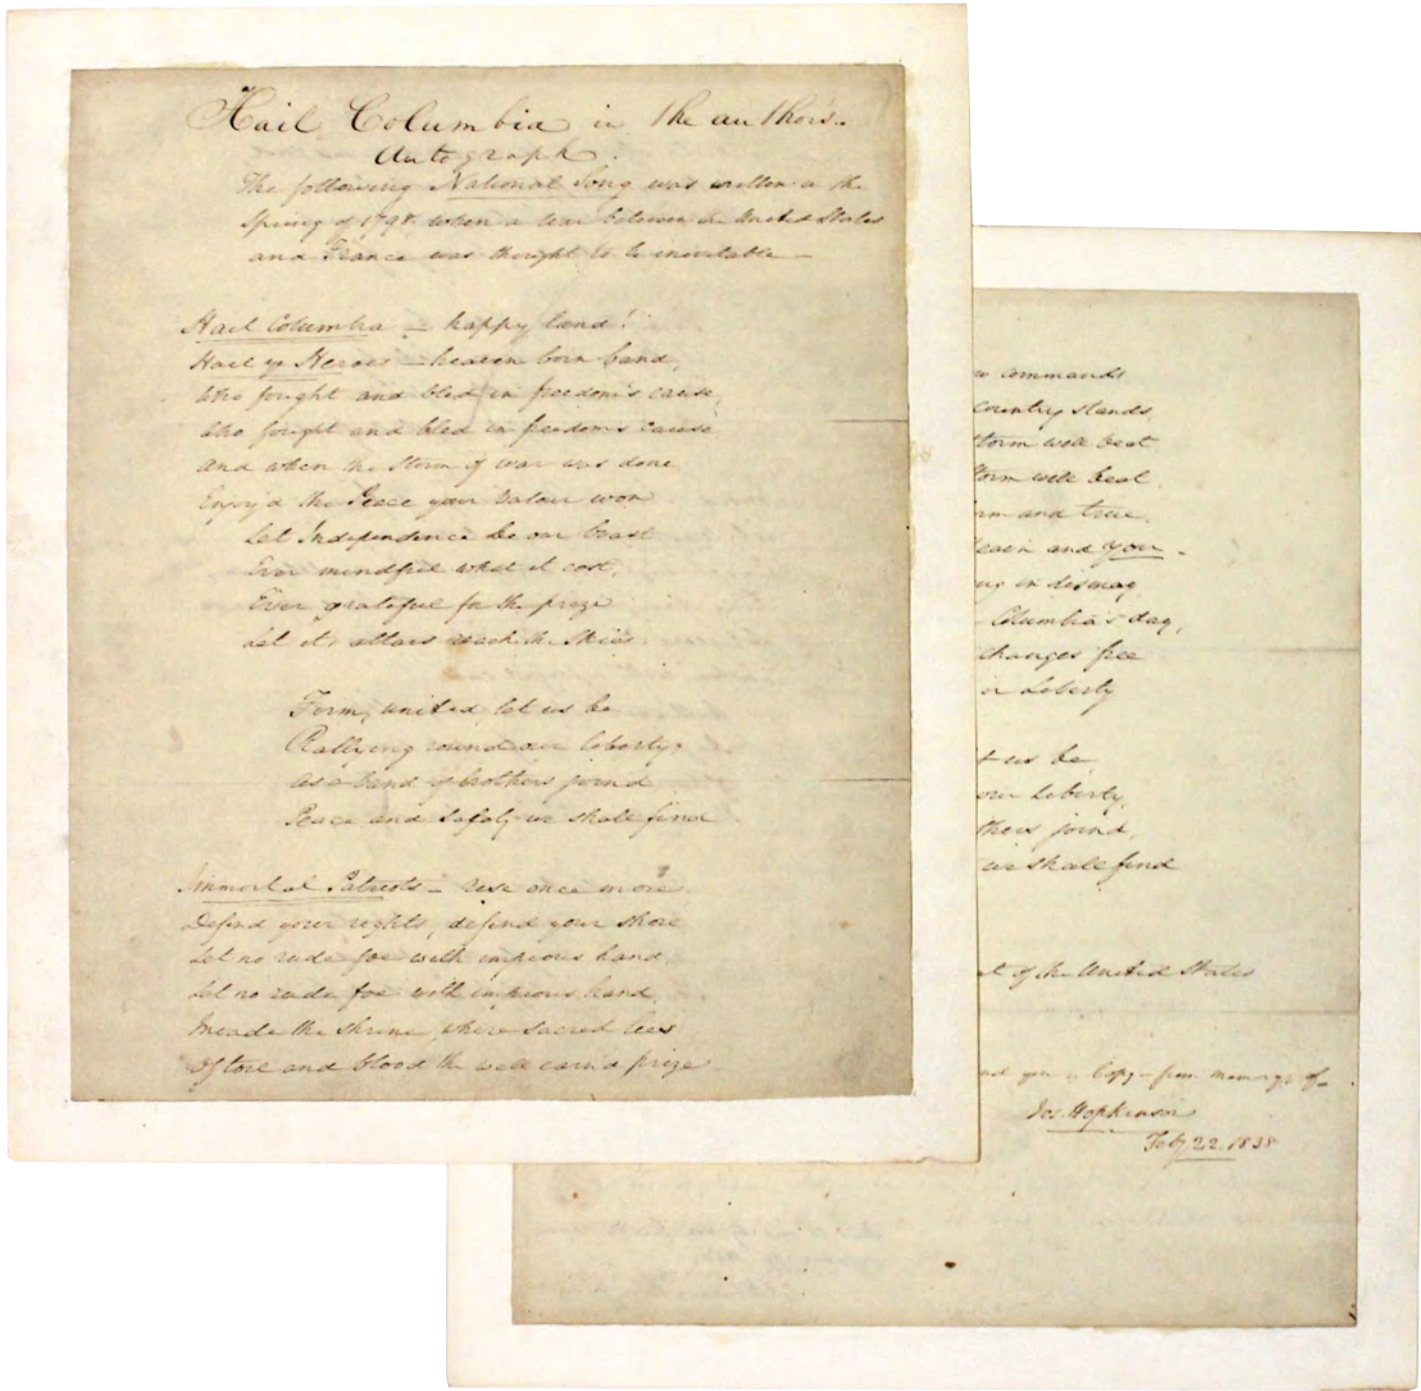 Hail Columbia in the author's
Autograph.
The following National Song was written in the
Spring of 1798, when a war between the United States
and France was thought to be inevitable —
Hail Columbia — happy land!
Hail ye Heroes — heaven born band,
Who fought and bled in freedom's cause,
Who fought and bled in freedom's cause
And when the storm of war was done
Enjoy'd the Peace your valour won
Let Independence be our boast
Ever mindful what it cost,
Ever grateful for the prize
Let its altars reach the Skies.
Firm, united let us be
Rallying round our liberty,
As a band of brothers joind
Peace and Safety we shall find
Immortal Patriots — rise once more
Defend your rights, defend your shore
Let no rude foe with impious hand,
Let no rude foe with impious hand,
Invade the shrine, where sacred lies
Of toil and blood the well earn'd prize
commands
Country stands,
storm well beat
storm well beat.
and true,
and you —
in dismay
Columbia's day,
changes free
or Liberty
us be,
our Liberty,
joind,
we shall find
of the United States
you a Copy — from memory of —
Jos. Hopkinson
Feby 22. 1838